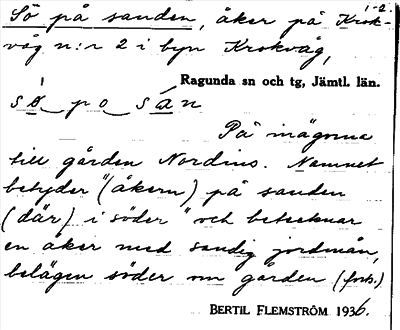 1-2.
Sö på sanden, åker på Krok-
våg n:r 2 i byn Krokvåg,
Ragunda sn och tg, Jämtl. län.
sö̀ po sán
På inägorna
till gården Nordins. Namnet
betyder "(åkern) på sanden
(där) i söder" och betecknar
en åker med sandig jordmån,
belägen söder om gården (forts.)
BERTIL FLEMSTRÖM 1936.